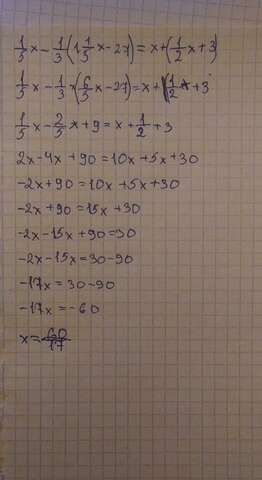 1/5 x - 1/3 (1 1/5 x - 27) = x + (1/2 x + 3)
1/5 x - 1/3 x (6/5 x - 27) = x + 1/2 x + 3
1/5 x - 2/5 x + 9 = x + 1/2 + 3
2x - 4x + 90 = 10x + 5x + 30
-2x + 90 = 10x + 5x + 30
-2x + 90 = 15x + 30
-2x - 15x + 90 = 30
-2x - 15x = 30 - 90
-17x = 30 - 90
-17x = -60
x = 60/17